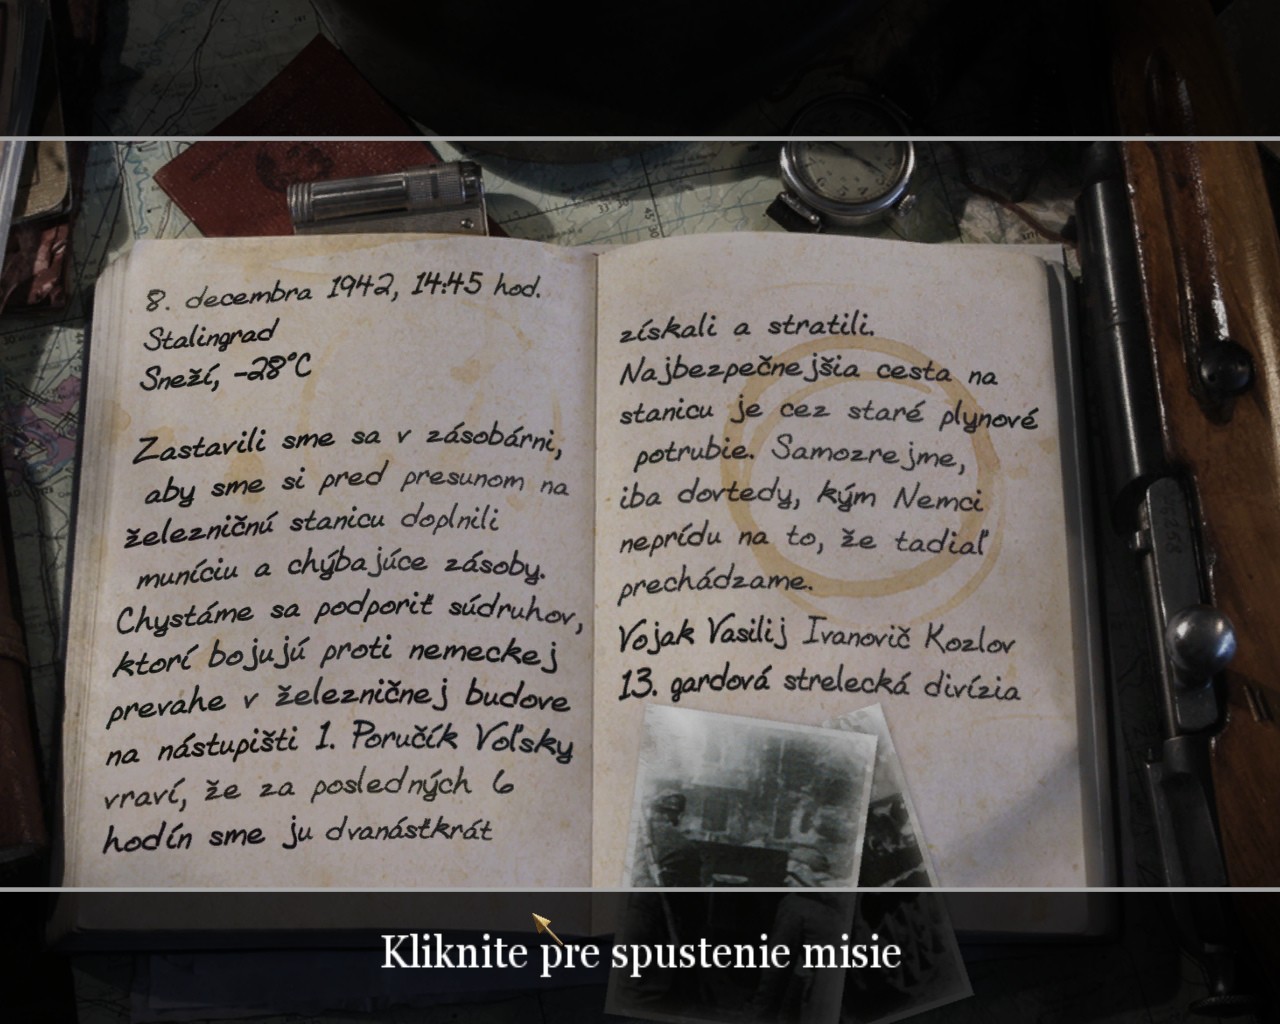 8. decembra 1942, 14:45 hod.
Stalingrad
Sneží, -28°C
Zastavili sme sa v zásobárni,
aby sme si pred presunom na
železničnú stanicu doplnili
muníciu a chýbajúce zásoby.
Chystáme sa podporiť súdruhov,
ktorí bojujú proti nemeckej
prevahe v železničnej budove
na nástupišti 1. Poručík Voľsky
vraví, že za posledných 6
hodín sme ju dvanásťkrát
získali a stratili.
Najbezpečnejšia cesta na
stanicu je cez staré plynové
potrubie. Samozrejme,
iba dovtedy, kým Nemci
neprídu na to, že tadiaľ
prechádzame.
Vojak Vasilij Ivanovič Kozlov
13. gardová strelecká divízia
Kliknite pre spustenie misie